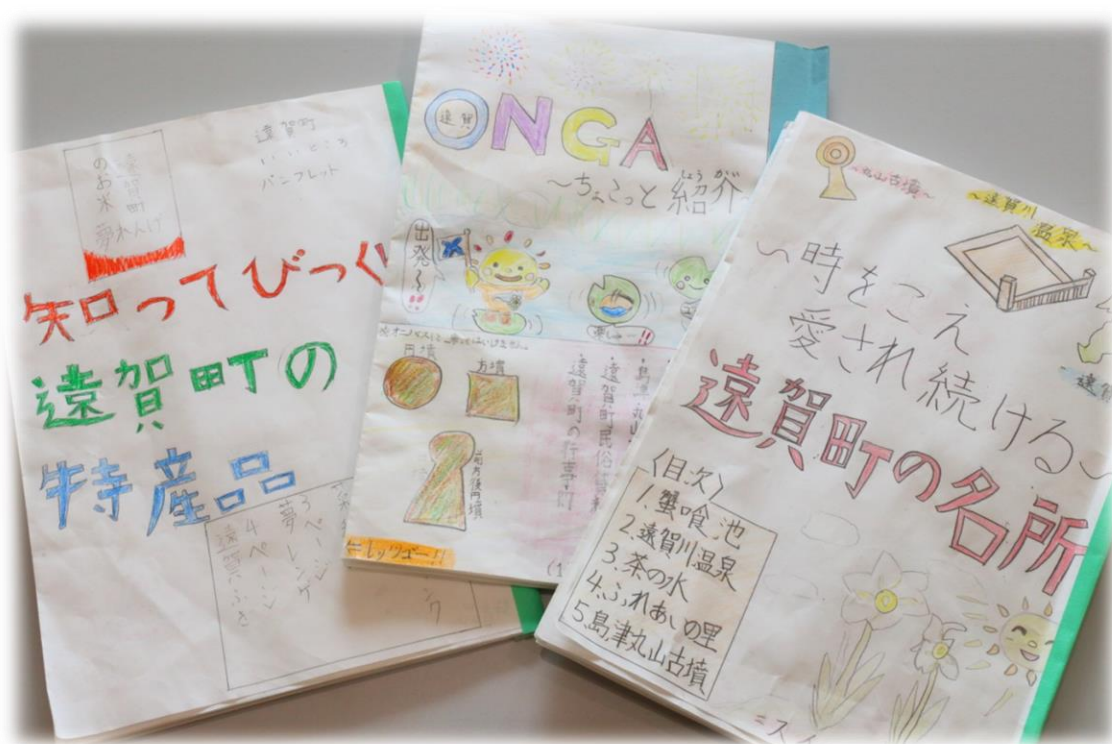 遠賀町
のお米
夢れんげ
遠賀町
いいところ
パンフレット
知ってびっく
遠賀町の
特産品
3ページ
夢レンゲ
4ページ
遠賀
ONGA
遠賀
～ちょこっと紹介
しょう
が
出発～!!
円墳
方墳
前方後円墳
島津丸山
遠賀町民俗
遠賀町の行事
=レッツゴー!!
～丸山古墳～
～遠賀川
温泉～
～時をこえ
愛され続ける～
遠賀町の名所
〈目次〉
1.蟹喰池
2.遠賀川温泉
3.茶の水
4.ふれあいの里
5.島津丸山古墳
=ス